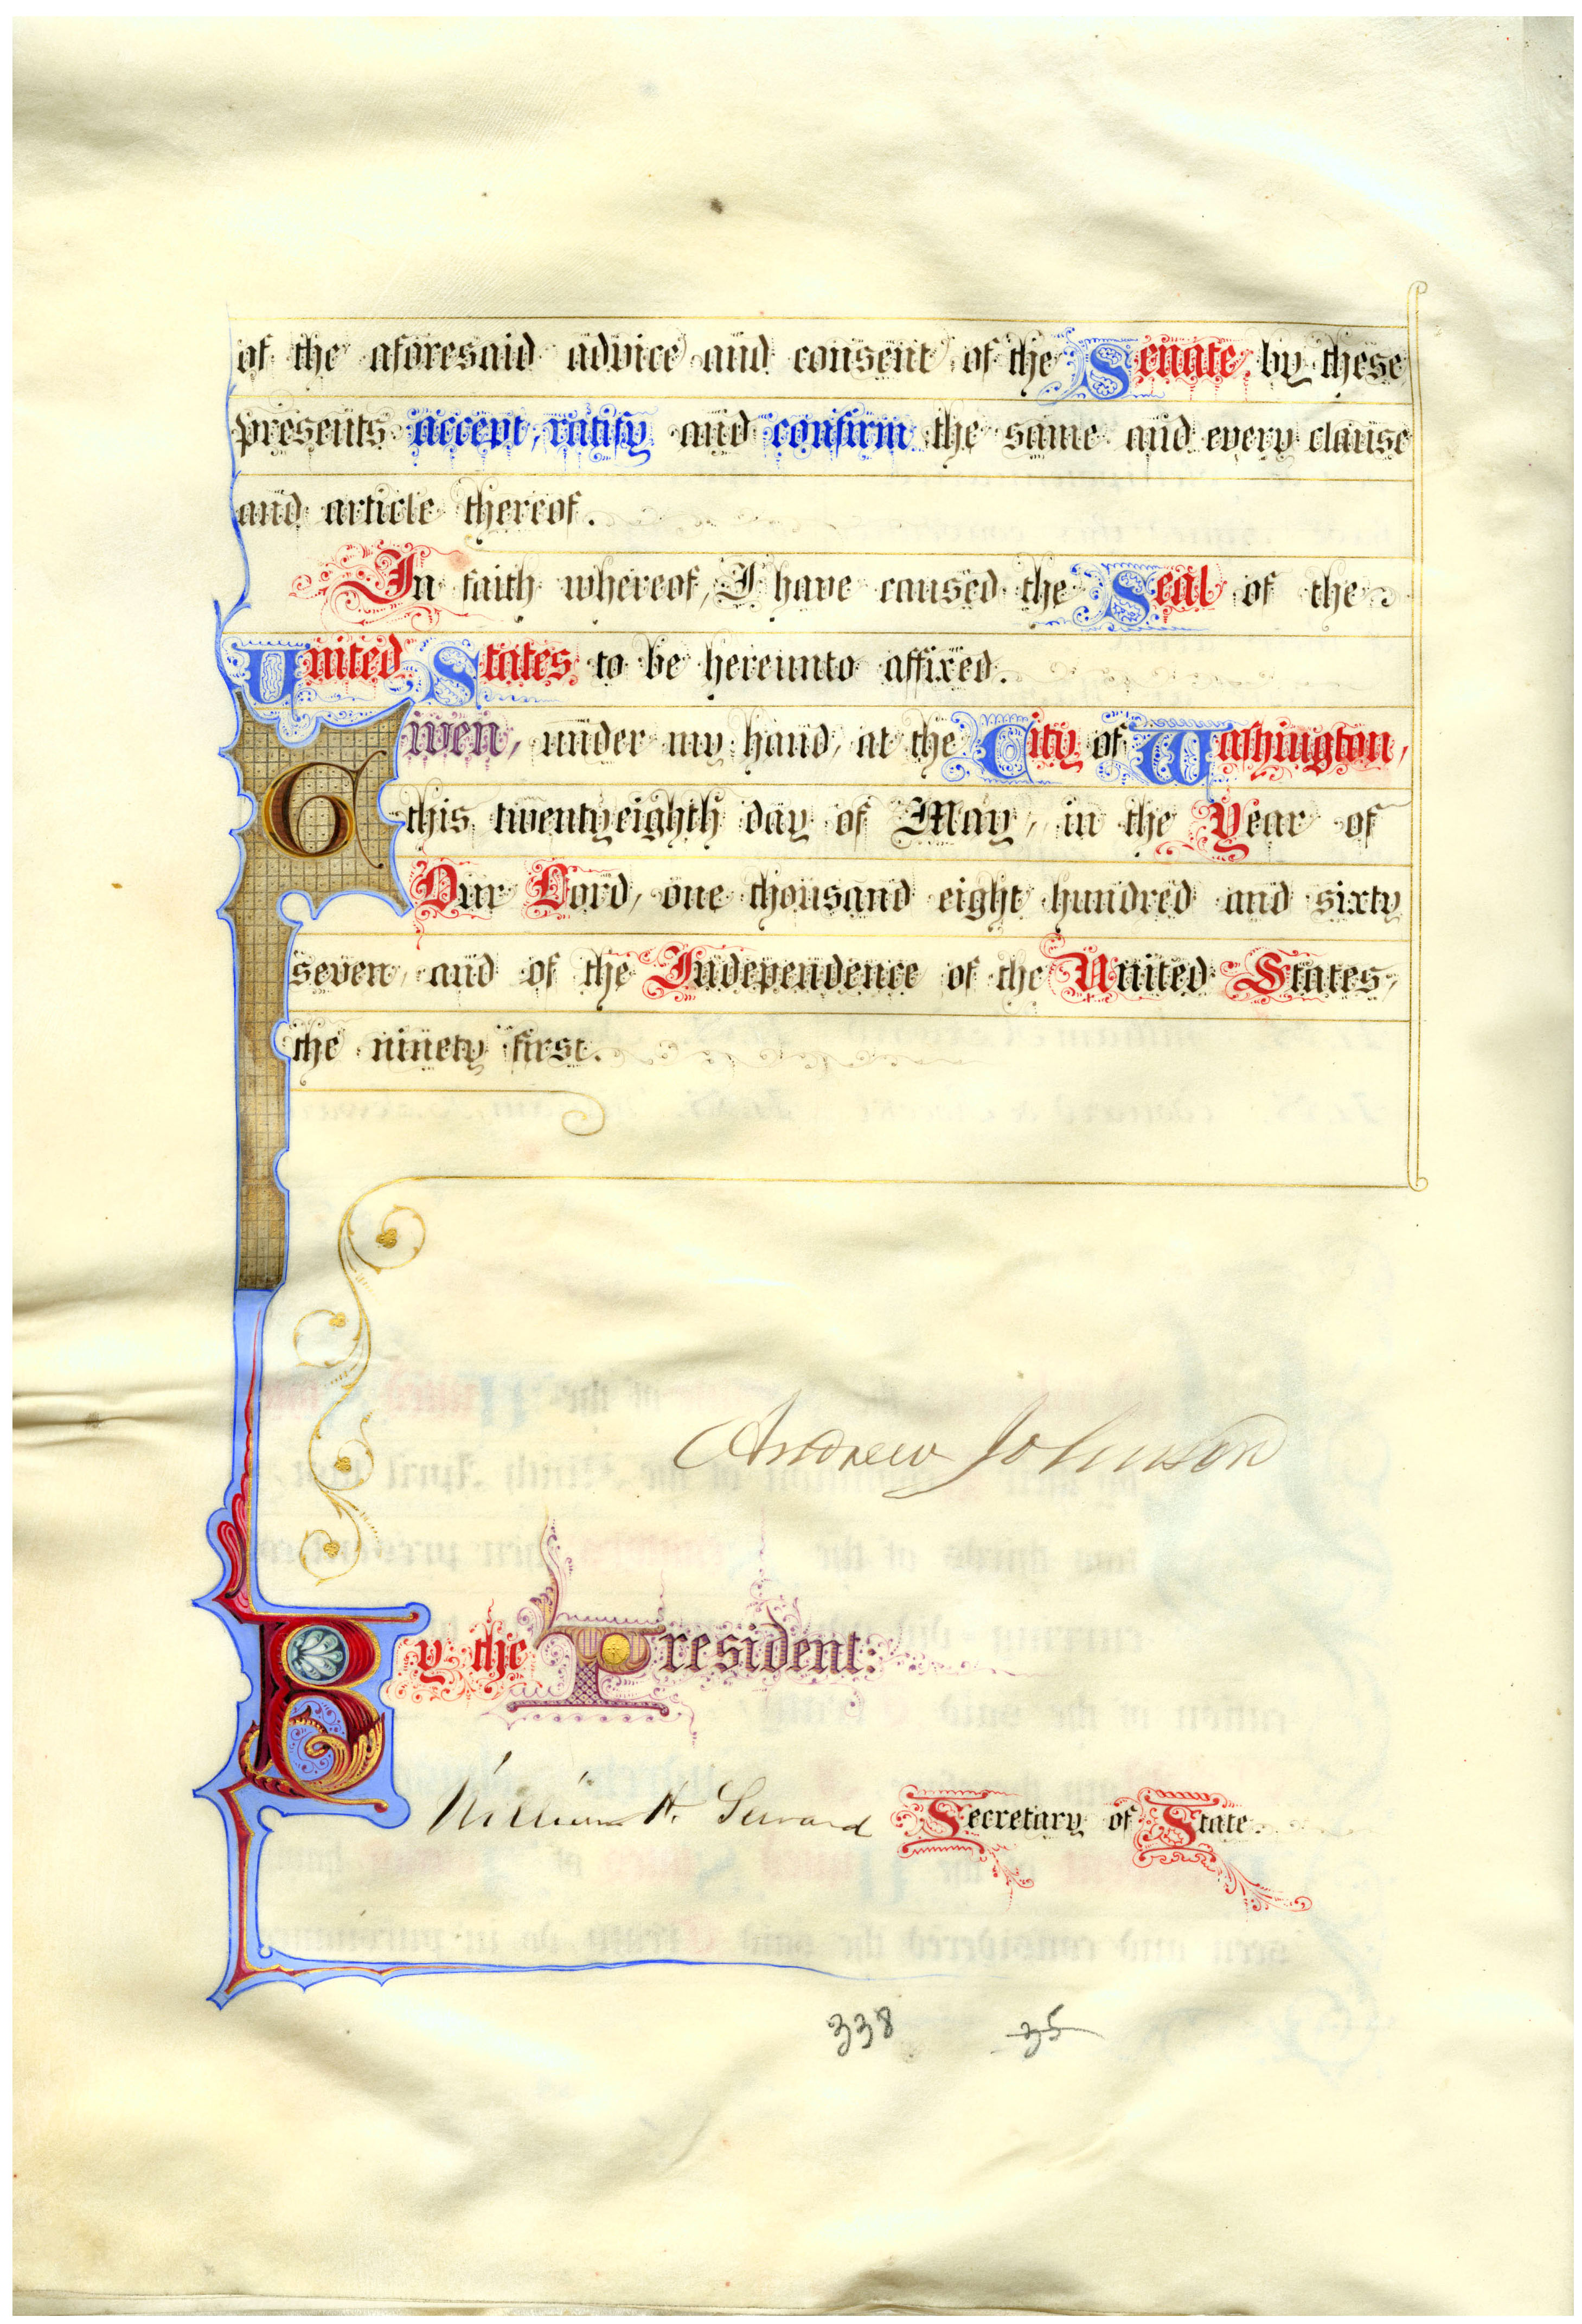 of the aforesaid advice and consent of the Senate, by these
presents accept, ratify and confirm the same and every clause
and article thereof.
In faith whereof, I have caused the Seal of the
United States to be hereunto affixed.
Given, under my hand, at the City of Washington,
this twenty eighth day of May, in the Year of
Our Lord, one thousand eight hundred and sixty
seven, and of the Independence of the United States,
the ninety first.
Andrew Johnson
By the President:
William H. Seward Secretary of State.
338 35